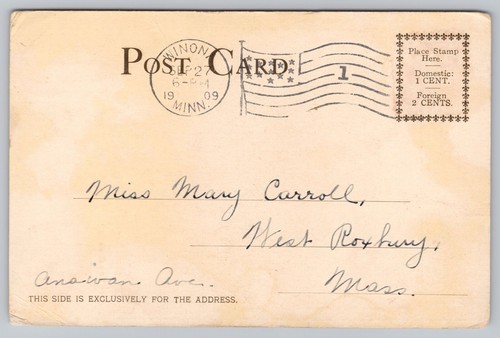 POST CARD
WINONA
SEP 27
6-PM
1909
MINN.
1
Place Stamp
Here.
Domestic:
1 CENT.
Foreign
2 CENTS.
Miss Mary Carroll,
West Roxbury,
Anawan Ave.
Mass.
THIS SIDE IS EXCLUSIVELY FOR THE ADDRESS.